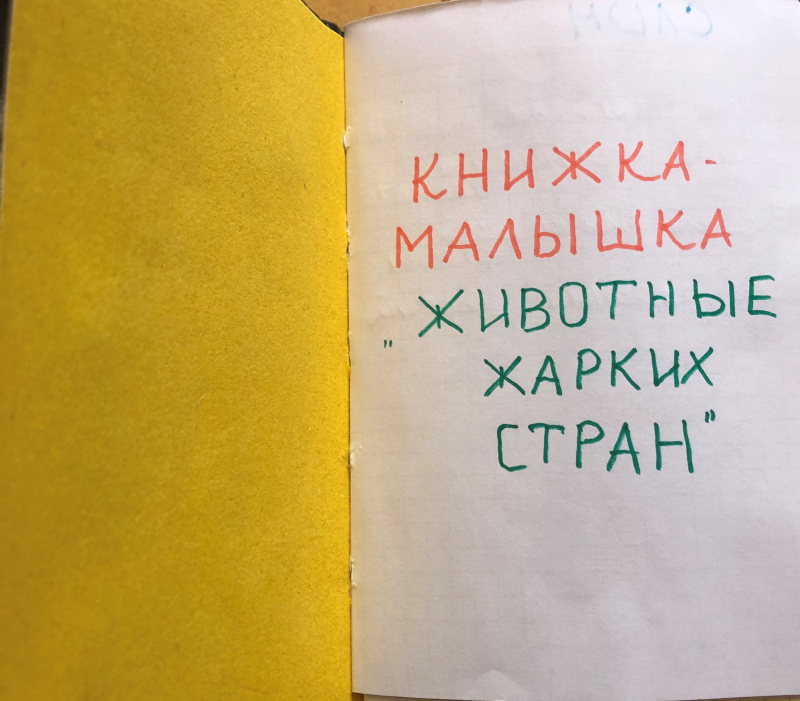 КНИЖКА-
МАЛЫШКА
"ЖИВОТНЫЕ
ЖАРКИХ
СТРАН"